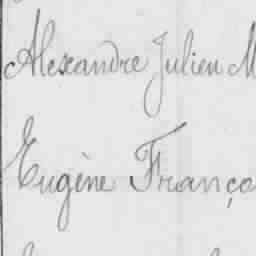 Alexandre Julien M
Eugène Franço